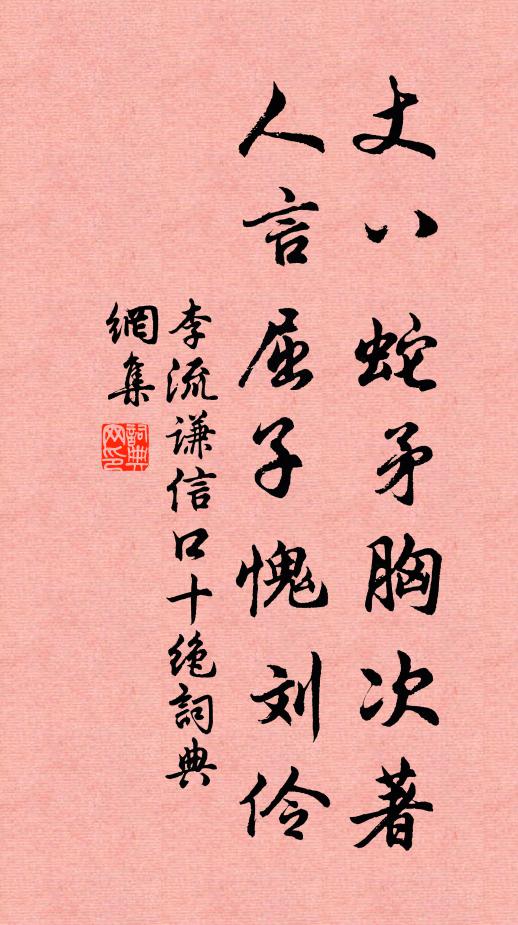 丈八蛇矛胸次著
人言屈子愧刘伶
李流谦信口十绝詞典
網集
詞典网印